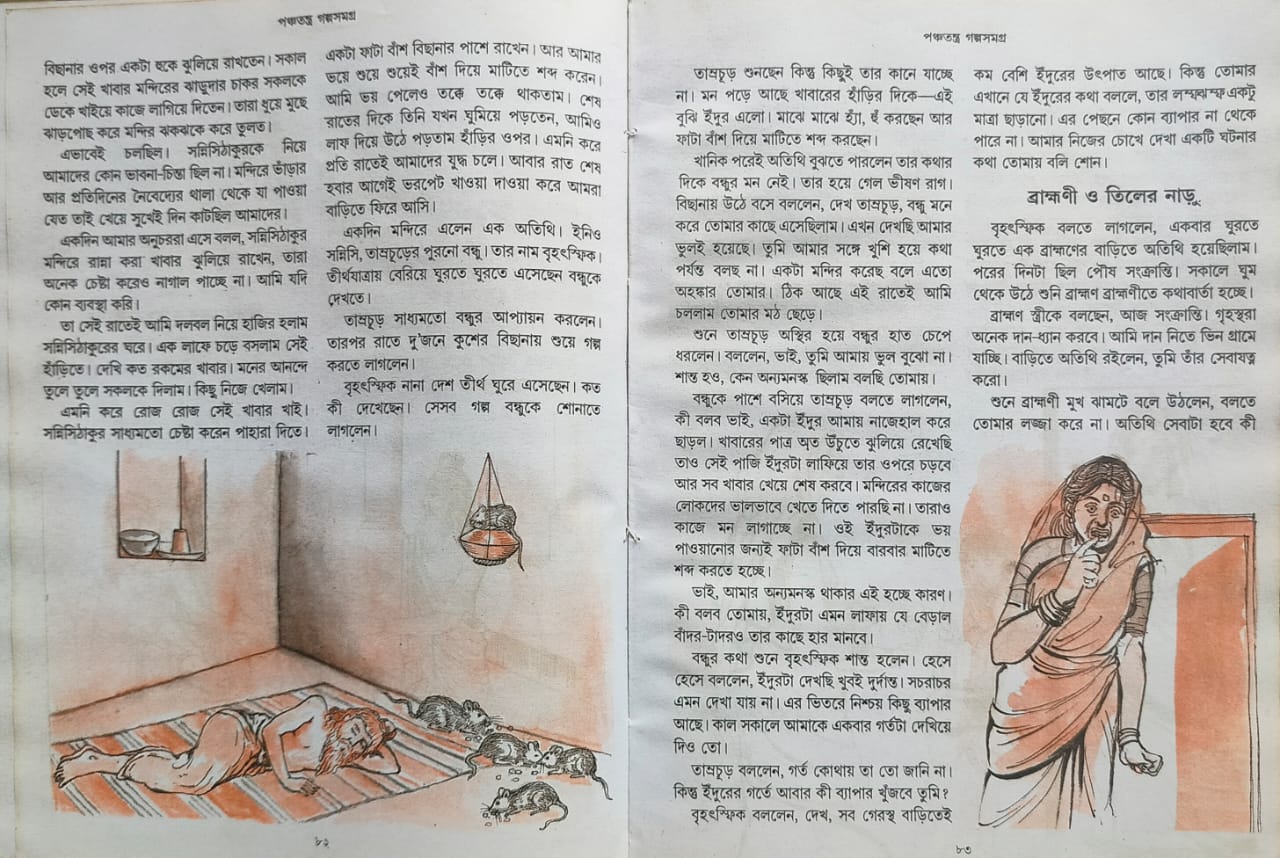 পঞ্চতন্ত্র গল্পসমগ্র
বিছানার ওপর একটা হুকে ঝুলিয়ে রাখতেন। সকাল
হলে সেই খাবার মন্দিরের ঝাড়ুদার চাকর সকলকে
ডেকে খাইয়ে কাজে লাগিয়ে দিতেন। তারা ধুয়ে মুছে
ঝাড়পোছ করে মন্দির ঝকঝকে করে তুলত।
এভাবেই চলছিল। সন্নিসিঠাকুরকে নিয়ে
আমাদের কোন ভাবনা-চিন্তা ছিল না। মন্দিরে ভাঁড়ার
আর প্রতিদিনের নৈবেদ্যের থালা থেকে যা পাওয়া
যেত তাই খেয়ে সুখেই দিন কাটছিল আমাদের।
একদিন আমার অনুচররা এসে বলল, সন্নিসিঠাকুর
মন্দিরে রান্না করা খাবার ঝুলিয়ে রাখেন, তারা
অনেক চেষ্টা করেও নাগাল পাচ্ছে না। আমি যদি
কোন ব্যবস্থা করি।
তা সেই রাতেই আমি দলবল নিয়ে হাজির হলাম
সন্নিসিঠাকুরের ঘরে। এক লাফে চড়ে বসলাম সেই
হাঁড়িতে। দেখি কত রকমের খাবার। মনের আনন্দে
তুলে তুলে সকলকে দিলাম। কিছু নিজে খেলাম।
এমনি করে রোজ রোজ সেই খাবার খাই।
সন্নিসিঠাকুর সাধ্যমতো চেষ্টা করেন পাহারা দিতে।
একটা ফাটা বাঁশ বিছানার পাশে রাখেন। আর আমার
ভয়ে শুয়ে শুয়েই বাঁশ দিয়ে মাটিতে শব্দ করেন।
আমি ভয় পেলেও তক্কে তক্কে থাকতাম। শেষ
রাতের দিকে তিনি যখন ঘুমিয়ে পড়তেন, আমিও
লাফ দিয়ে উঠে পড়তাম হাঁড়ির ওপর। এমনি করে
প্রতি রাতেই আমাদের যুদ্ধ চলে। আবার রাত শেষ
হবার আগেই ভরপেট খাওয়া দাওয়া করে আমরা
বাড়িতে ফিরে আসি।
একদিন মন্দিরে এলেন এক অতিথি। ইনিও
সন্নিসি, তাম্রচূড়ের পুরনো বন্ধু। তার নাম বৃহৎস্ফিক।
তীর্থযাত্রায় বেরিয়ে ঘুরতে ঘুরতে এসেছেন বন্ধুকে
দেখতে।
তাম্রচূড় সাধ্যমতো বন্ধুর আপ্যায়ন করলেন।
তারপর রাতে দু'জনে কুশের বিছানায় শুয়ে গল্প
করতে লাগলেন।
বৃহৎস্ফিক নানা দেশ তীর্থ ঘুরে এসেছেন। কত
কী দেখেছেন। সেসব গল্প বন্ধুকে শোনাতে
লাগলেন।
৮২
পঞ্চতন্ত্র গল্পসমগ্র
তাম্রচূড় শুনছেন কিন্তু কিছুই তার কানে যাচ্ছে
না। মন পড়ে আছে খাবারের হাঁড়ির দিকে—এই
বুঝি ইঁদুর এলো। মাঝে মাঝে হ্যাঁ, হুঁ করছেন আর
ফাটা বাঁশ দিয়ে মাটিতে শব্দ করছেন।
খানিক পরেই অতিথি বুঝতে পারলেন তার কথার
দিকে বন্ধুর মন নেই। তার হয়ে গেল ভীষণ রাগ।
বিছানায় উঠে বসে বললেন, দেখ তাম্রচূড়, বন্ধু মনে
করে তোমার কাছে এসেছিলাম। এখন দেখছি আমার
ভুলই হয়েছে। তুমি আমার সঙ্গে খুশি হয়ে কথা
পর্যন্ত বলছ না। একটা মন্দির করেছ বলে এতো
অহঙ্কার তোমার। ঠিক আছে এই রাতেই আমি
চললাম তোমার মঠ ছেড়ে।
শুনে তাম্রচূড় অস্থির হয়ে বন্ধুর হাত চেপে
ধরলেন। বললেন, ভাই, তুমি আমায় ভুল বুঝো না।
শান্ত হও, কেন অন্যমনস্ক ছিলাম বলছি তোমায়।
বন্ধুকে পাশে বসিয়ে তাম্রচূড় বলতে লাগলেন,
কী বলব ভাই, একটা ইঁদুর আমায় নাজেহাল করে
ছাড়ল। খাবারের পাত্র অত উঁচুতে ঝুলিয়ে রেখেছি
তাও সেই পাজি ইঁদুরটা লাফিয়ে তার ওপরে চড়বে
আর সব খাবার খেয়ে শেষ করবে। মন্দিরের কাজের
লোকদের ভালভাবে খেতে দিতে পারছি না। তারাও
কাজে মন লাগাচ্ছে না। ওই ইঁদুরটাকে ভয়
পাওয়ানোর জন্যই ফাটা বাঁশ দিয়ে বারবার মাটিতে
শব্দ করতে হচ্ছে।
ভাই, আমার অন্যমনস্ক থাকার এই হচ্ছে কারণ।
কী বলব তোমায়, ইঁদুরটা এমন লাফায় যে বেড়াল
বাঁদর-টাদরও তার কাছে হার মানবে।
বন্ধুর কথা শুনে বৃহৎস্ফিক শান্ত হলেন। হেসে
হেসে বললেন, ইঁদুরটা দেখছি খুবই দুর্দান্ত। সচরাচর
এমন দেখা যায় না। এর ভিতরে নিশ্চয় কিছু ব্যাপার
আছে। কাল সকালে আমাকে একবার গর্তটা দেখিয়ে
দিও তো।
তাম্রচূড় বললেন, গর্ত কোথায় তা তো জানি না।
কিন্তু ইঁদুরের গর্তে আবার কী ব্যাপার খুঁজবে তুমি?
বৃহৎস্ফিক বললেন, দেখ, সব গেরস্থ বাড়িতেই
কম বেশি ইঁদুরের উৎপাত আছে। কিন্তু তোমার
এখানে যে ইঁদুরের কথা বললে, তার লম্ফঝম্ফ একটু
মাত্রা ছাড়ানো। এর পেছনে কোন ব্যাপার না থেকে
পারে না। আমার নিজের চোখে দেখা একটি ঘটনার
কথা তোমায় বলি শোন।
ব্রাহ্মণী ও তিলের নাড়ু
বৃহৎস্ফিক বলতে লাগলেন, একবার ঘুরতে
ঘুরতে এক ব্রাহ্মণের বাড়িতে অতিথি হয়েছিলাম।
পরের দিনটা ছিল পৌষ সংক্রান্তি। সকালে ঘুম
থেকে উঠে শুনি ব্রাহ্মণ ব্রাহ্মণীতে কথাবার্তা হচ্ছে।
ব্রাহ্মণ স্ত্রীকে বলছেন, আজ সংক্রান্তি। গৃহস্থরা
অনেক দান-ধ্যান করবে। আমি দান নিতে ভিন গ্রামে
যাচ্ছি। বাড়িতে অতিথি রইলেন, তুমি তাঁর সেবাযত্ন
করো।
শুনে ব্রাহ্মণী মুখ ঝামটে বলে উঠলেন, বলতে
তোমার লজ্জা করে না। অতিথি সেবাটা হবে কী
৮৩